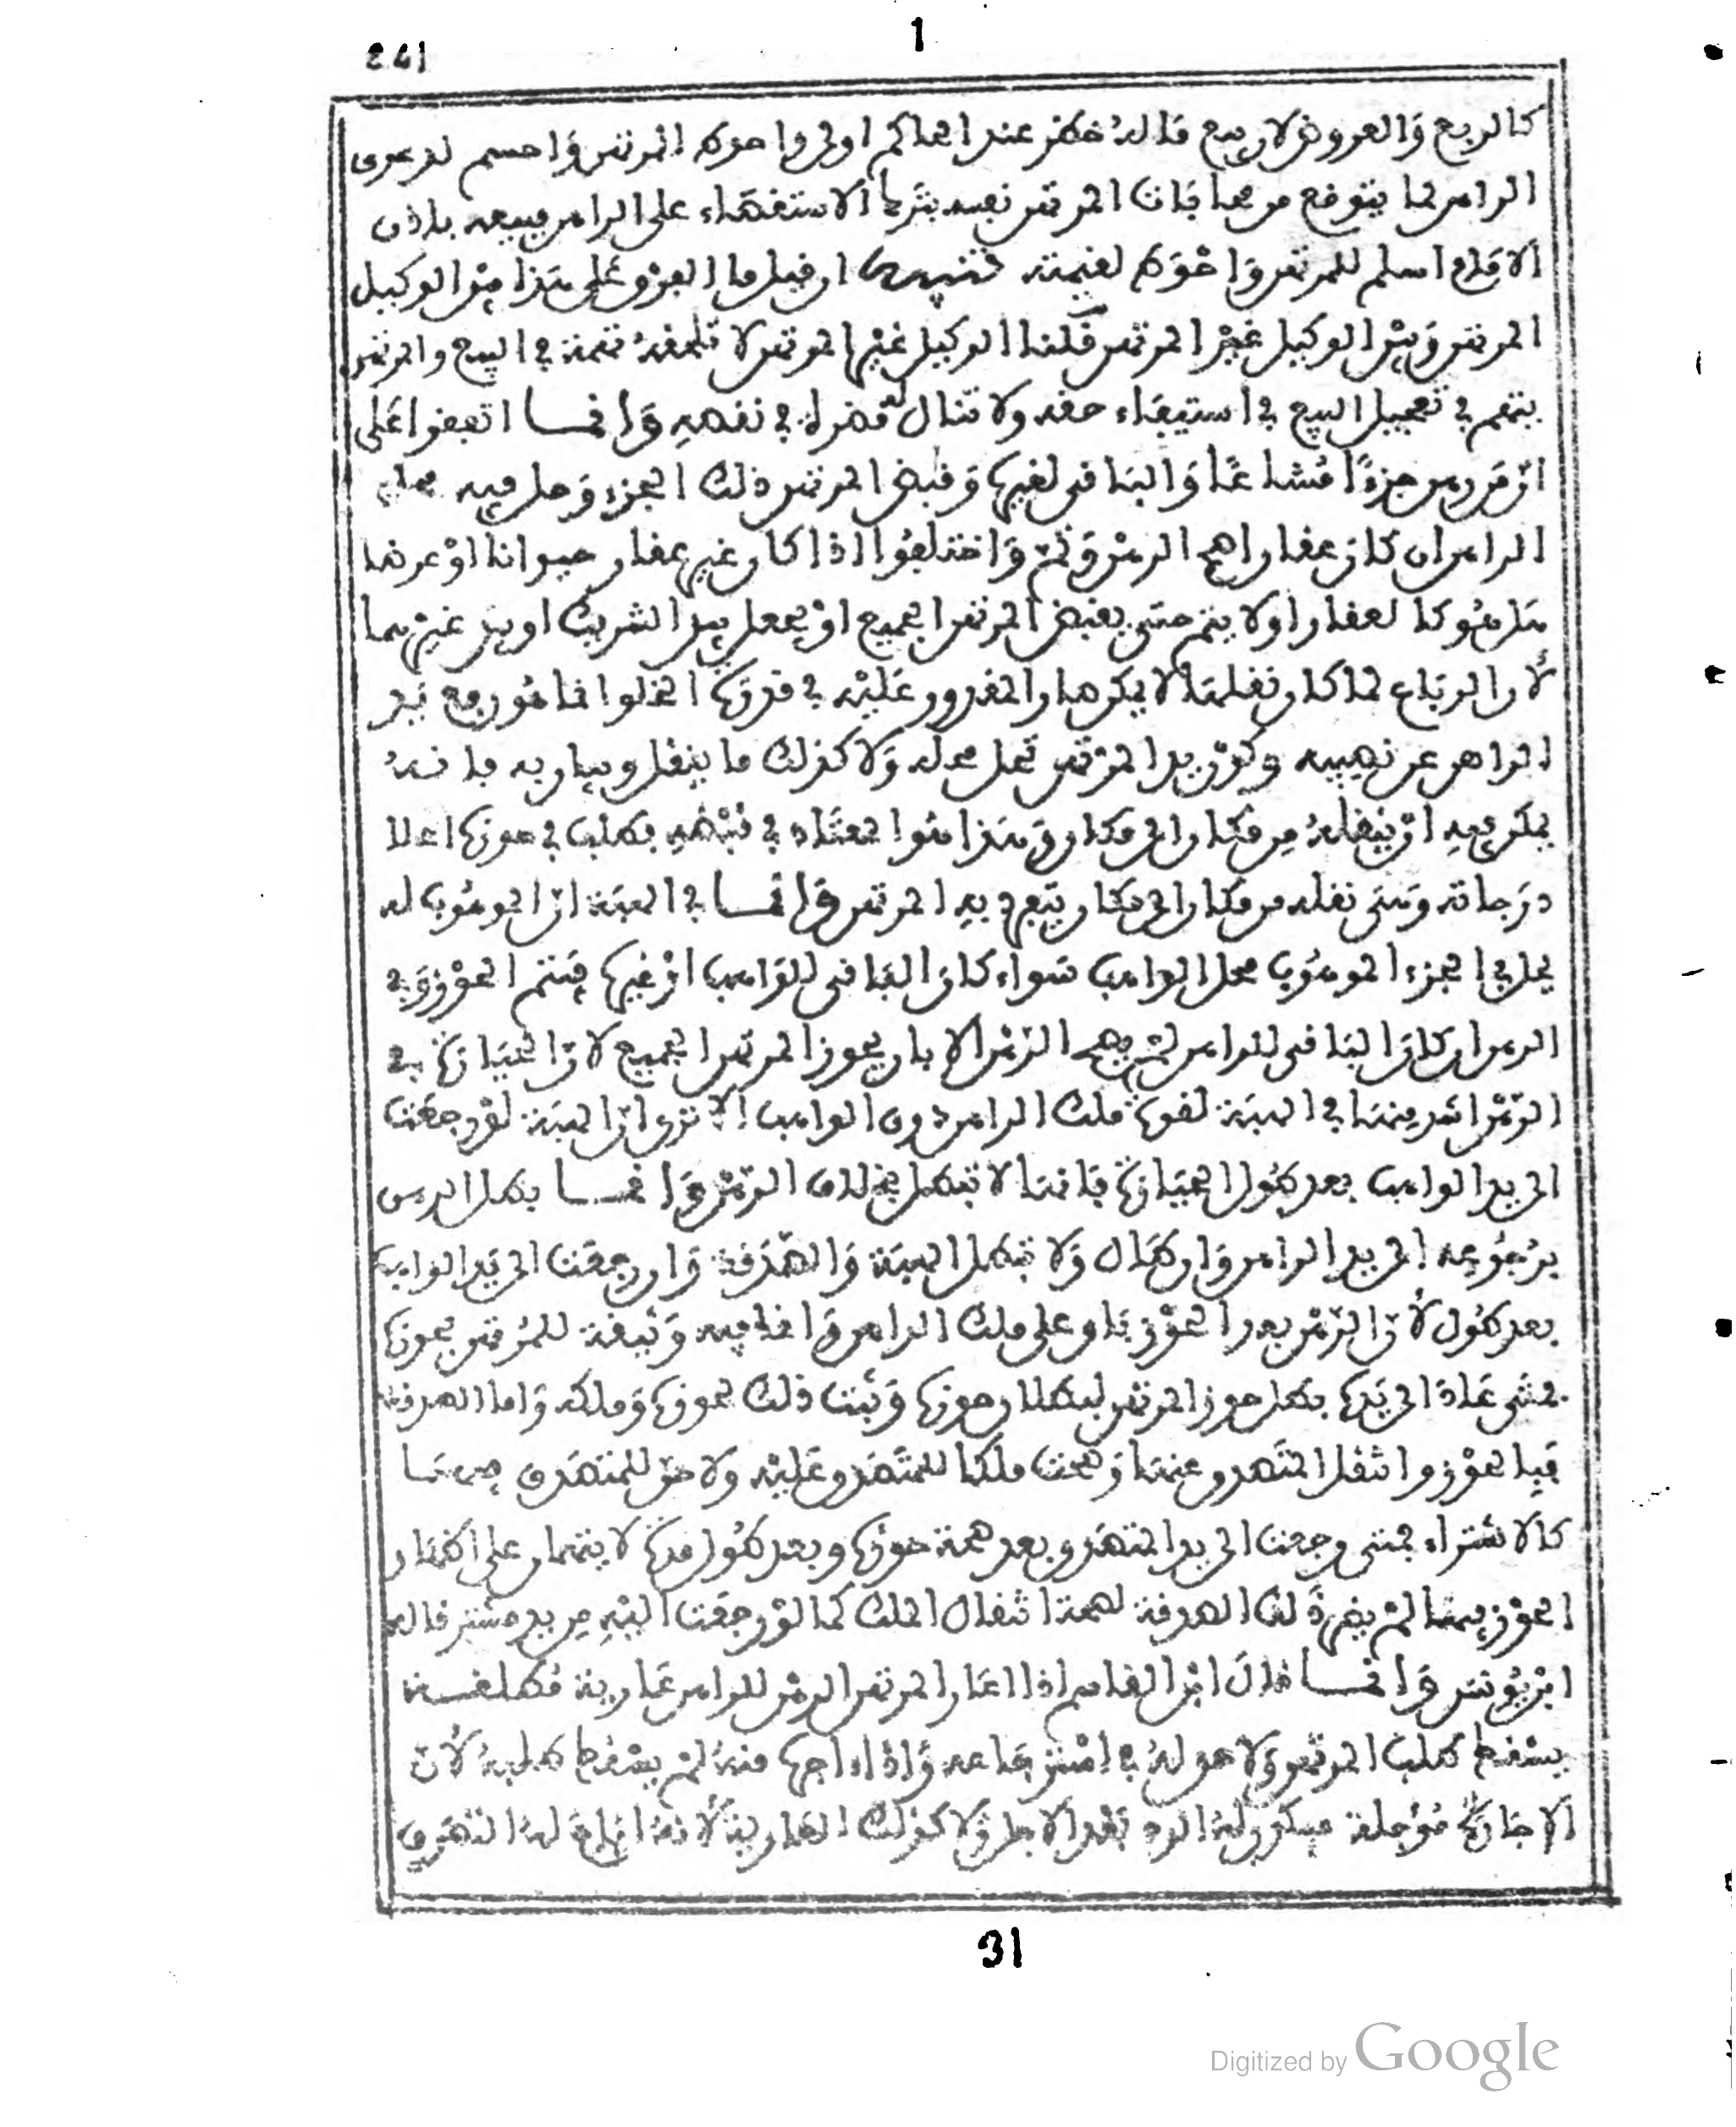 241
1
كالربع والعروض لان بيع فالد عند الحاكم اولى واحوط للمرتهن واحسم لدعوى
الراهن لما يتوقع من محاباة المرتهن نفسه بترك الاستقصاء على الراهن فبيعه باذن
الامام اسلم للمرتهن واحوط لغيبته تنبيه ان قيل ما الفرق على هذا بين الوكيل
المرتهن وبين الوكيل غير المرتهن قلنا الوكيل غير المرتهن لا تلحقه تهمة في البيع والمرتهن
يتهم في تعجيل البيع في استيفاء حقه ولا تنال له في نقصه وانما اتفقوا على
ان من رهن جزءا مشاعا والباقي لغيره وقبض المرتهن ذلك الجزء وحل فيه محل
الراهن ان كان عقارا صح الرهن وتم واختلفوا اذا كان غير عقار حيوانا او عرضا
هل هو كالعقار او لا يتم حتى يقبض المرتهن الجميع او يجعل بيد الشريك او بيد غيرهما
لان الرباع لما كان نقلها لا يمكن صار المقدور عليه في قدرة المخلوقات هو رفع يد
الراهن عن نصيبه وكون يد المرتهن تحل محله ولا كذلك ما ينقل ويبان به فانه
يمكن فيه ان ينقله من مكان الى مكان وهذا هو المعتاد في قبضه فطلب في حوزه اعلا
درجاته ومتى نقله من مكان الى مكان يتعهد به المرتهن وانما في الهبة ان الموهوب له
يحل في الجزء الموهوب محل الواهب سواء كان الباقي للواهب او غيره فيتم الحوز وفي
الرهن ان كان الباقي للراهن لم يصح الرهن الا بان يحوز المرتهن الجميع لان الحيازة في
الرهن اشد منها في الهبة لقوة ملك الراهن دون الواهب الا ترى ان الهبة لو رجعت
الى يد الواهب بعد طول الحيازة فانها لا تبطل بخلاف الرهن وانما بطل الرهن
برجوعه الى يد الراهن وان طال ولا تبطل الهبة والصدقة وان رجعت الى يد الواهب
بعد طول لان الرهن بعد الحوز باق على ملك الراهن وانما فيه وثيقة للمرتهن بحوزه
فمتى عاد الى يده بطل حوز المرتهن لبطلان حوزه وثبت ذلك لحوزه وملكه واما الصدقة
فبالحوز وانتقل المتصدق عنها وصحت ملكا للمتصدق عليه ولا حق للمتصدق فيها
كالاشتراء فمتى رجعت الى يد المتصدق بعد صحة حوزه وبعد طول مدة لا يتهمان على اظهار
الحوز فيها لم يضر ذلك الصدقة لصحة انتقال الملك كما لو رجعت اليه من يد مشتر قاله
ابن يونس وانما قال ابن القاسم اذا اعار المرتهن الرهن للراهن عارية مطلقة
يسقط طلب المرتهن ولا حق له في استرجاعه واذا اجره منه لم يسقط طلبه لان
الاجارة مؤجلة فيكون له الرد بعد الاجل ولا كذلك العارية لانه اباح له التصرف
31
Digitized by Google